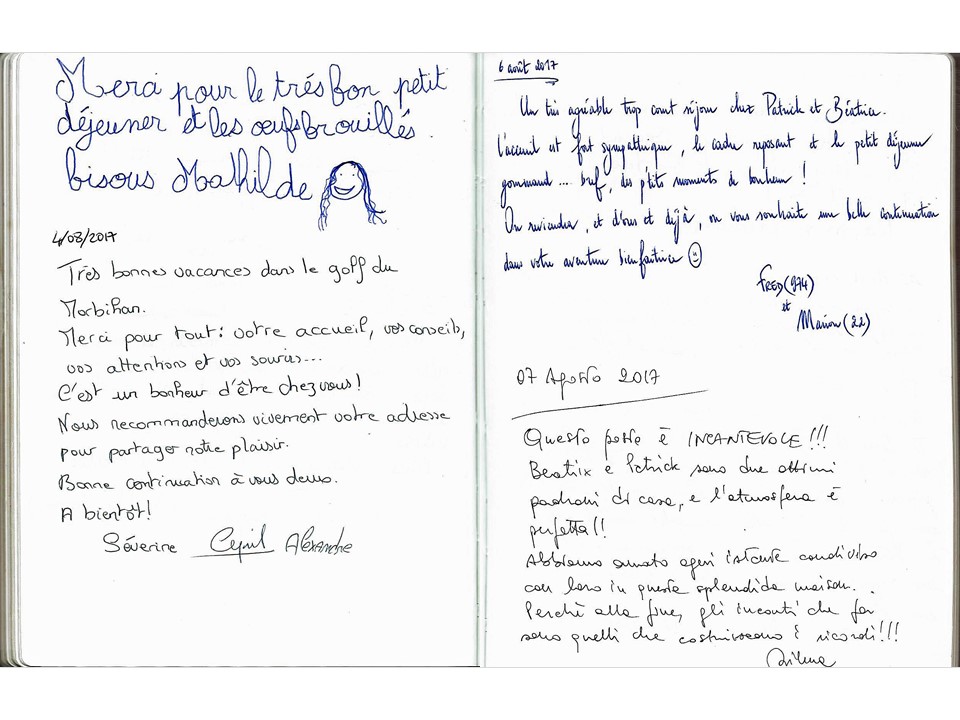 Merci pour le trés bon petit
déjeuner et les œufs brouillés.
bisous Mathilde
4/08/2017
Très bonnes vacances dans le golf du
Morbihan.
Merci pour tout : votre accueil, vos conseils,
vos attentions et vos souries...
C'est un bonheur d'être chez vous !
Nous recommanderons vivement votre adresse
pour partager notre plaisir.
Bonne continuation à vous deux.
A bientôt !
Séverine Cyril Alexandre
6 août 2017
Un très agréable trop court séjour chez Patrick et Béatrice.
L'accueil est fort sympathique, le cadre reposant et le petit déjeuner
gourmand... bref, des p'tits moments de bonheur !
On reviendra, et d'ores et déjà, on vous souhaite une belle continuation
dans votre aventure bienfaitrice
FRED (974)
et
Marion (22)
07 Agosto 2017
Questo posto è INCANTEVOLE !!!
Beatrix e Patrick sono due ottimi
padroni di casa, e l'atmosfera è
perfetta !!
Abbiamo amato ogni istante condiviso
con loro in questa splendida maison.
Perché alla fine, gli incontri che fai
sono quelli che costruiscono i ricordi !!!